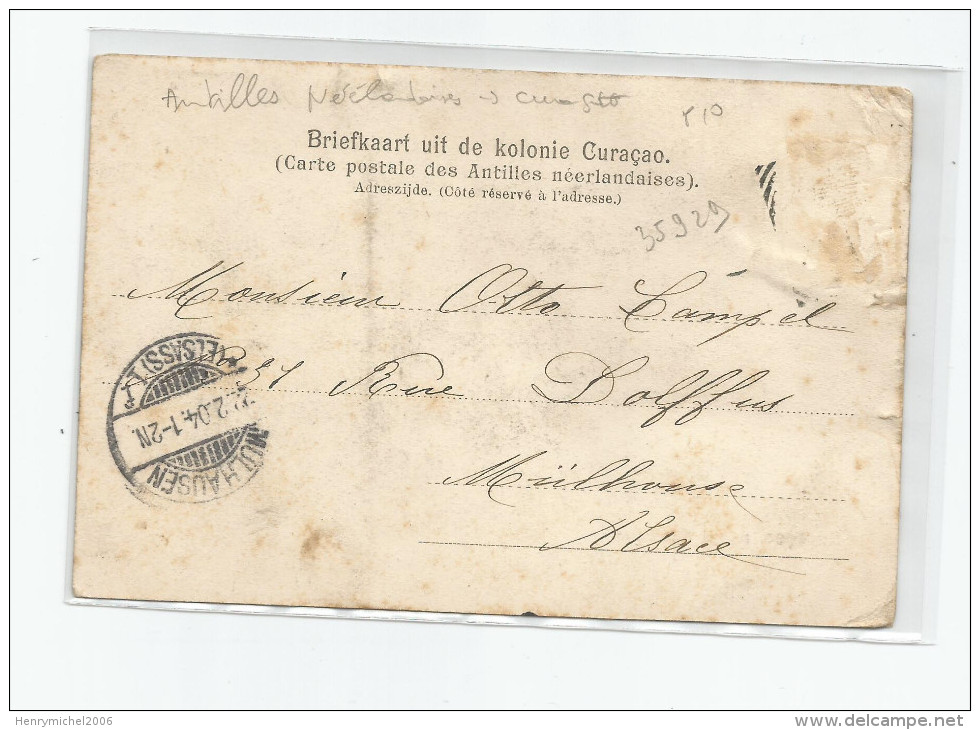 Antilles Néerlandaises
Briefkaart uit de kolonie Curaçao.
(Carte postale des Antilles néerlandaises).
Adreszijde. (Côté réservé à l'adresse.)
35929
Monsieur Otto Campel
31 Rue Dolffus
Mülhouse
Alsace
MÜLHAUSEN
2.04.1-2N.
(ELSASS) 1.
Henrymichel2006
www.delcampe.net